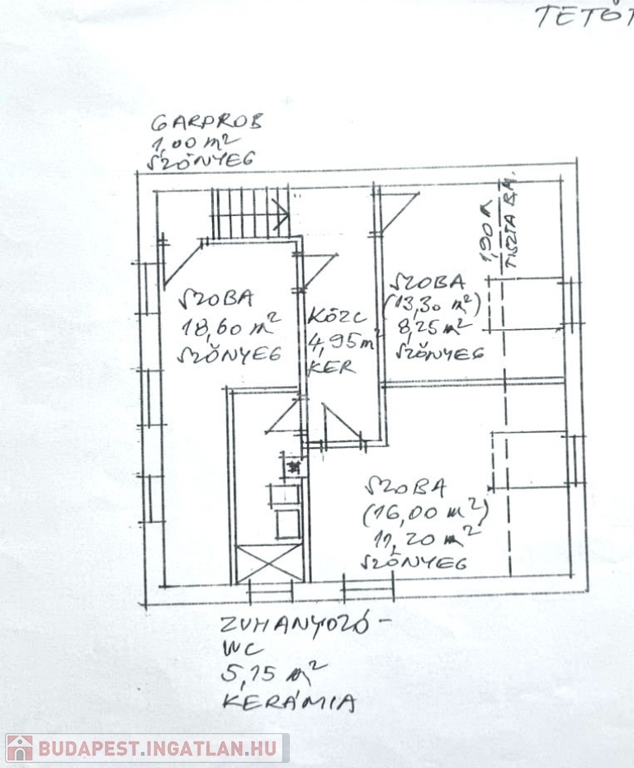 TETŐT
GARPROB
1,00 m²
SZŐNYEG
1,90 M
TISZTA B.M.
SZOBA
18,60 m²
SZŐNYEG
KÖZL
4,95 m²
KER
SZOBA
(13,30 m²)
8,25 m²
SZŐNYEG
SZOBA
(16,00 m²)
11,20 m²
SZŐNYEG
ZUHANYOZÓ-
WC
5,15 m²
KERÁMIA
BUDAPEST.INGATLAN.HU